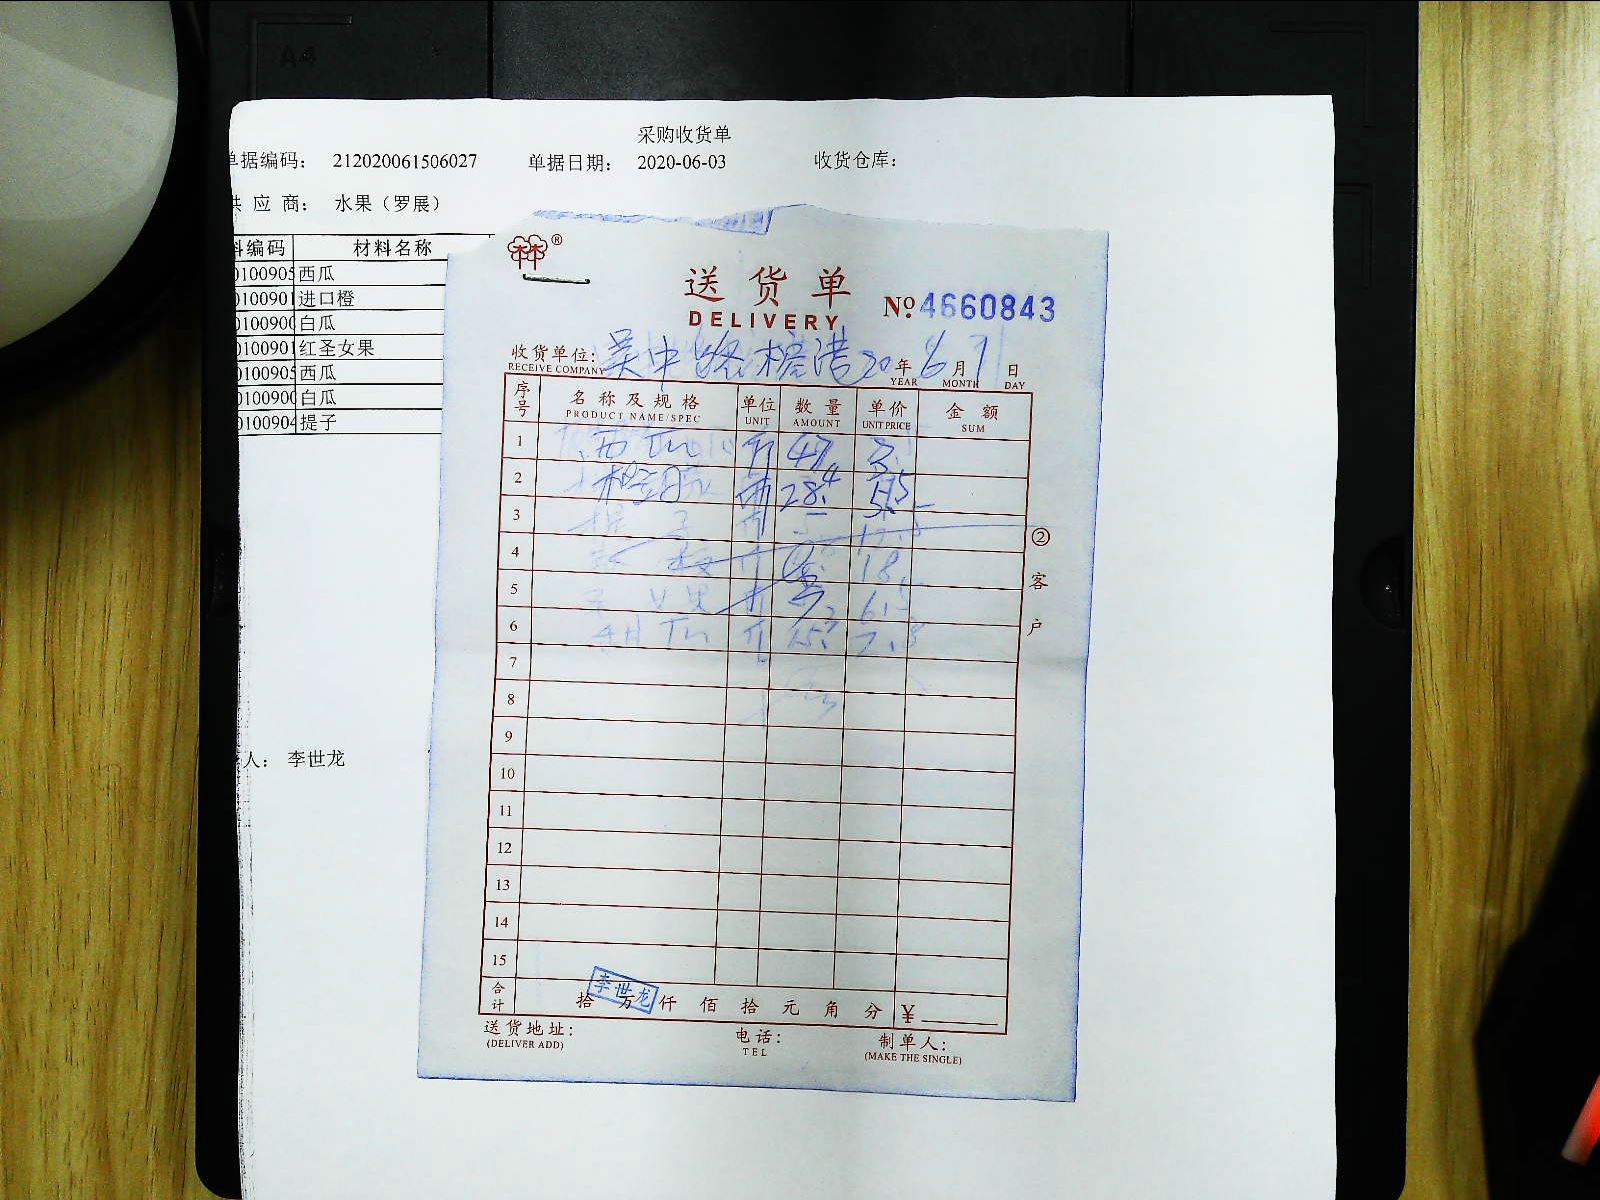 A4
采购收货单
单据编码： 212020061506027 单据日期： 2020-06-03 收货仓库：
供 应 商： 水果（罗展）
料编码 材料名称
0100905 西瓜
010090 进口橙
010090 白瓜
010090 红圣女果
0100905 西瓜
010090 白瓜
0100904 提子
人： 李世龙
林®
送货单
DELIVERY
№ 4660843
收货单位： 吴中路 20年6月 日
RECEIVE COMPANY YEAR MONTH DAY
序号 名称及规格 单位 数量 单价 金额
PRODUCT NAME/SPEC UNIT AMOUNT UNIT PRICE SUM
1 西瓜 斤 47 3
2 斤 28.4 5.5
3 提子 斤
4 斤 18
5 女果 斤 6.5
6 甜瓜 斤 7.8
7
8
9
10
11
12
13
14
15
②客户
合计 拾万仟佰拾元角分 ¥
李世龙
送货地址： 电话： 制单人：
(DELIVER ADD) TEL (MAKE THE SINGLE)